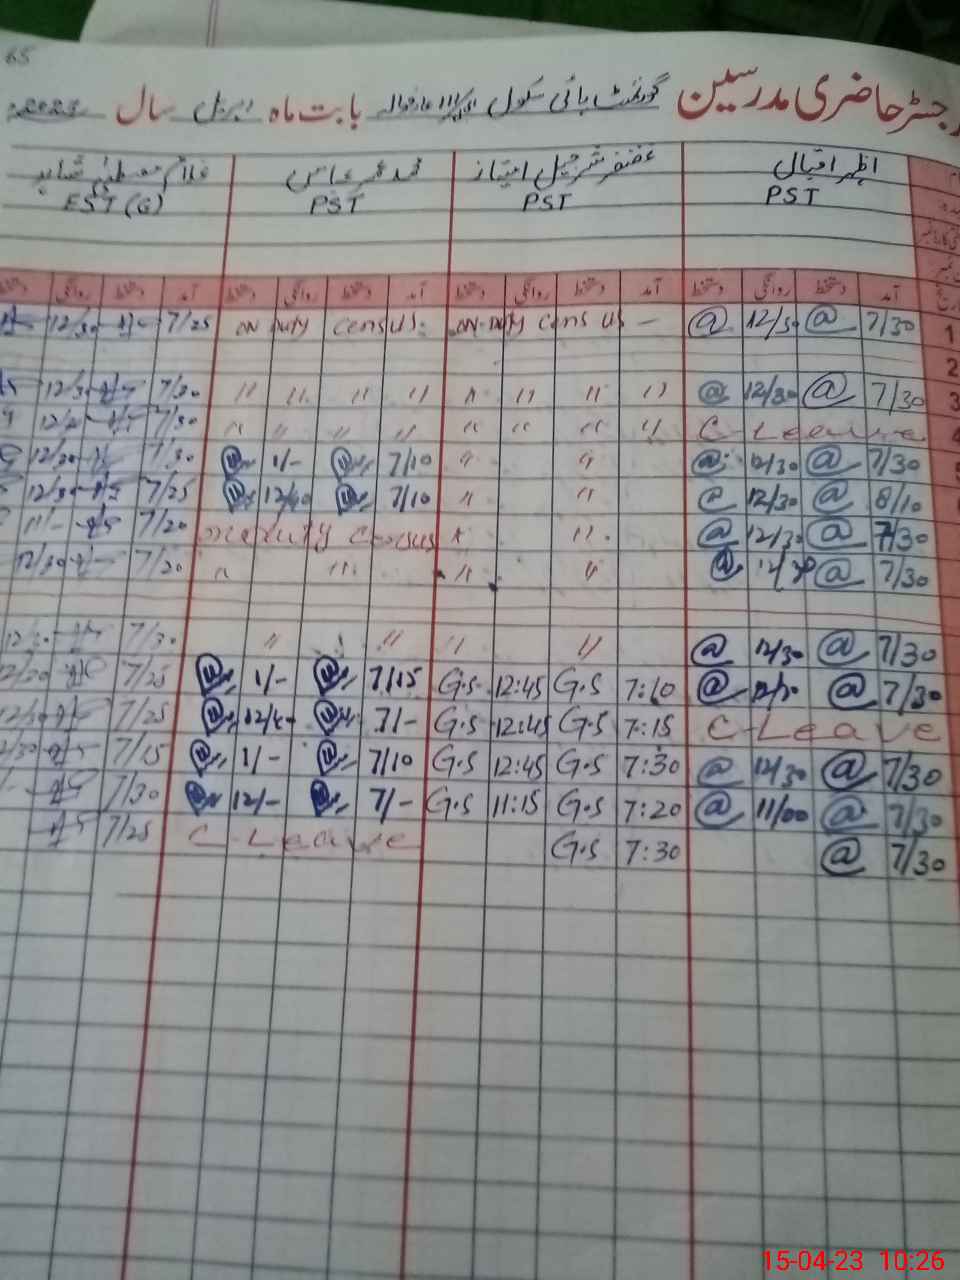 65
رجسٹر حاضری مدرسین گورنمنٹ ہائی سکول بابت ماہ اپریل سال 2023
اظہر اقبال غضنفر شرجیل امتیاز محمد عمر عباس غلام مصطفیٰ شاہد
PST PST PST EST (G)
آمد دستخط روانگی دستخط آمد دستخط روانگی دستخط آمد دستخط روانگی دستخط آمد دستخط روانگی
1 7/30 @ 12/30 @ on duty census on duty census 7/25 12/30
2
3 7/30 @ 12/30 @ " " " " " " " " 7/30 12/30
4 C-Leave " " " " " " " " 7/30
5 7/30 @ 12/30 @ " " 7/10 1/- 7/30 12/30
8/10 @ 12/30 @ " " 7/10 12/40 7/25 12/30
7/30 @ 12/30 @ " " on duty census 7/20 11/-
7/30 @ 12/30 @ " " " " 7/20 12/30
7/30 @ 12/30 @ " " " " 7/30 12/30
7/30 @ 12/30 @ 7:10 G.S 12:45 G.S 7/15 1/- 7/25 12/30
C-Leave 7:15 G.S 12:45 G.S 7/- 7/25 12/30
7/30 @ 12/30 @ 7:30 G.S 12:45 G.S 7/10 1/- 7/15 12/30
7/30 @ 11/00 @ 7:20 G.S 11:15 G.S 7/- 12/- 7/30
7/30 @ 7:30 G.S C-Leave 7/25
15-04-23 10:26